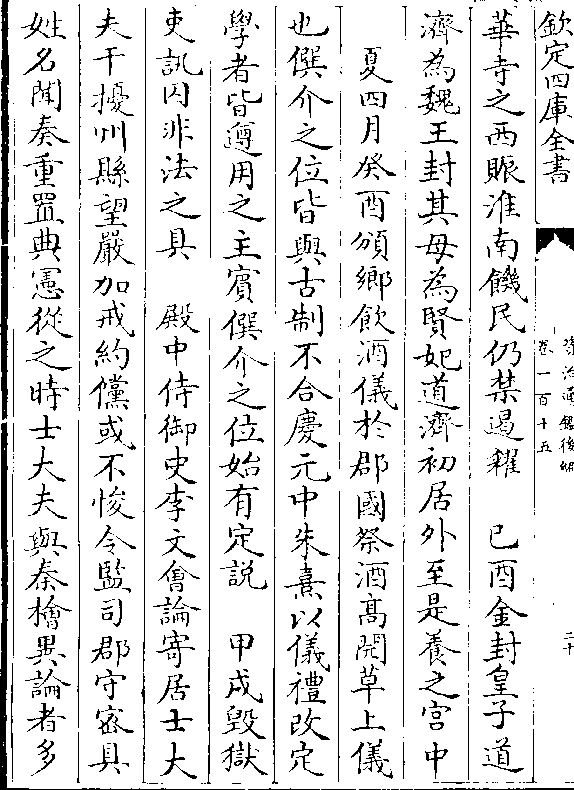 欽定四庫全書
資治通鑑後編
卷一百十五
二十
華寺之西賑淮南饑民仍禁遏糴　己酉金封皇子道
濟為魏王封其母為賢妃道濟初居外至是養之宫中
夏四月癸酉頒鄉飲酒儀於郡國祭酒髙閌草上儀
也僎介之位皆與古制不合慶元中朱熹以儀禮改定
學者皆遵用之主賓僎介之位始有定説　甲戌毁獄
吏訊囚非法之具　殿中侍御史李文會論寄居士大
夫干擾州縣望嚴加戒約儻或不悛令監司郡守宻具
姓名聞奏重置典憲從之時士大夫與秦檜異論者多